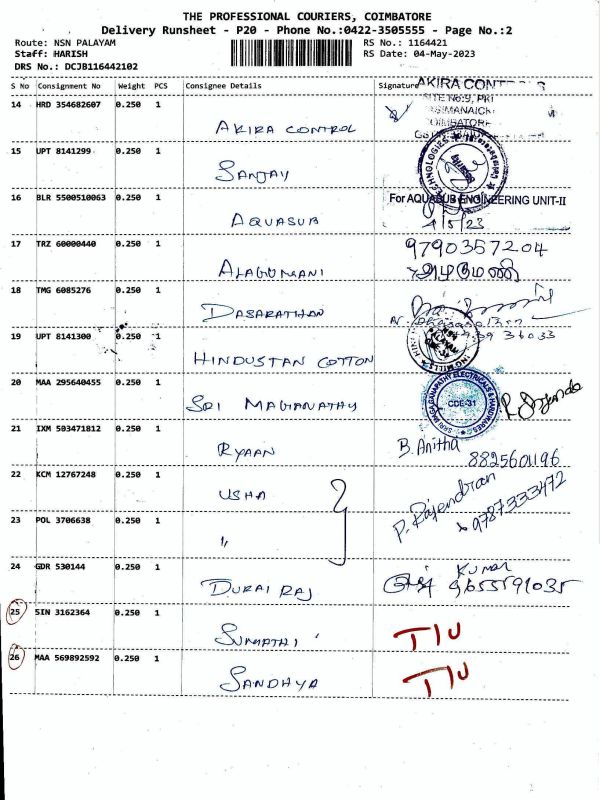 THE PROFESSIONAL COURIERS, COIMBATORE
Delivery Runsheet - P20 - Phone No.:0422-3505555 - Page No.:2
Route: NSN PALAYAM RS No.: 1164421
Staff: HARISH RS Date: 04-May-2023
DRS No.: DCJB116442102
S No Consignment No Weight PCS Consignee Details Signature
14 HRD 354682607 0.250 1 AKIRA CONTROL AKIRA CONT
15 UPT 8141299 0.250 1 SANJAY TECHNOLOGIES Security Coimbatore
16 BLR 5500510063 0.250 1 AQUASUB For AQUASUB ENGINEERING UNIT-II
4/5/23
17 TRZ 60000440 0.250 1 ALAGUMANI 9790357204
அழகுமணி
18 TMG 6085276 0.250 1 DASARATHAN
19 UPT 8141300 0.250 1 HINDUSTAN COTTON 36033
20 MAA 295640455 0.250 1 SRI MAGANATHY CDE-31
21 IXM 503471812 0.250 1 RYAAN B. Anitha
8825601196
22 KCM 12767248 0.250 1 USHA P. Rajendran
9787333472
23 POL 3706638 0.250 1 "
24 GDR 530144 0.250 1 DURAI RAJ Kumar
9655591035
25 SIN 3162364 0.250 1 SUMATHI T/U
26 MAA 569892592 0.250 1 SANDHYA T/U